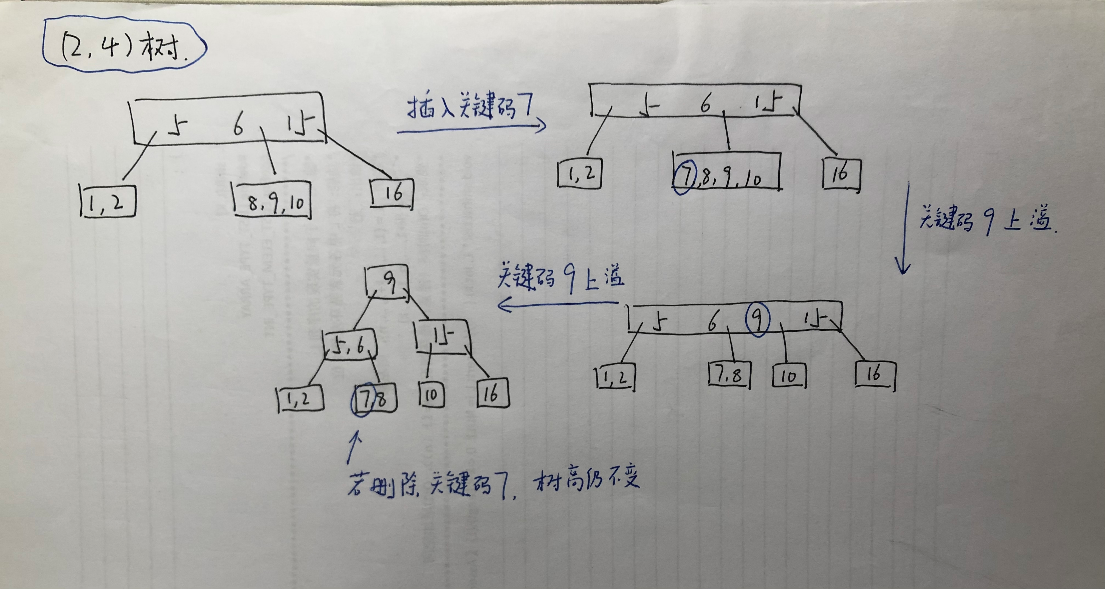 (2,4)树.
5 6 15
1,2
8,9,10
16
插入关键码7
5 6 15
1,2
7,8,9,10
16
关键码9上溢.
5 6 9 15
1,2
7,8
10
16
关键码9上溢
9
5,6
15
1,2
7,8
10
16
若删除关键码7,树高仍不变